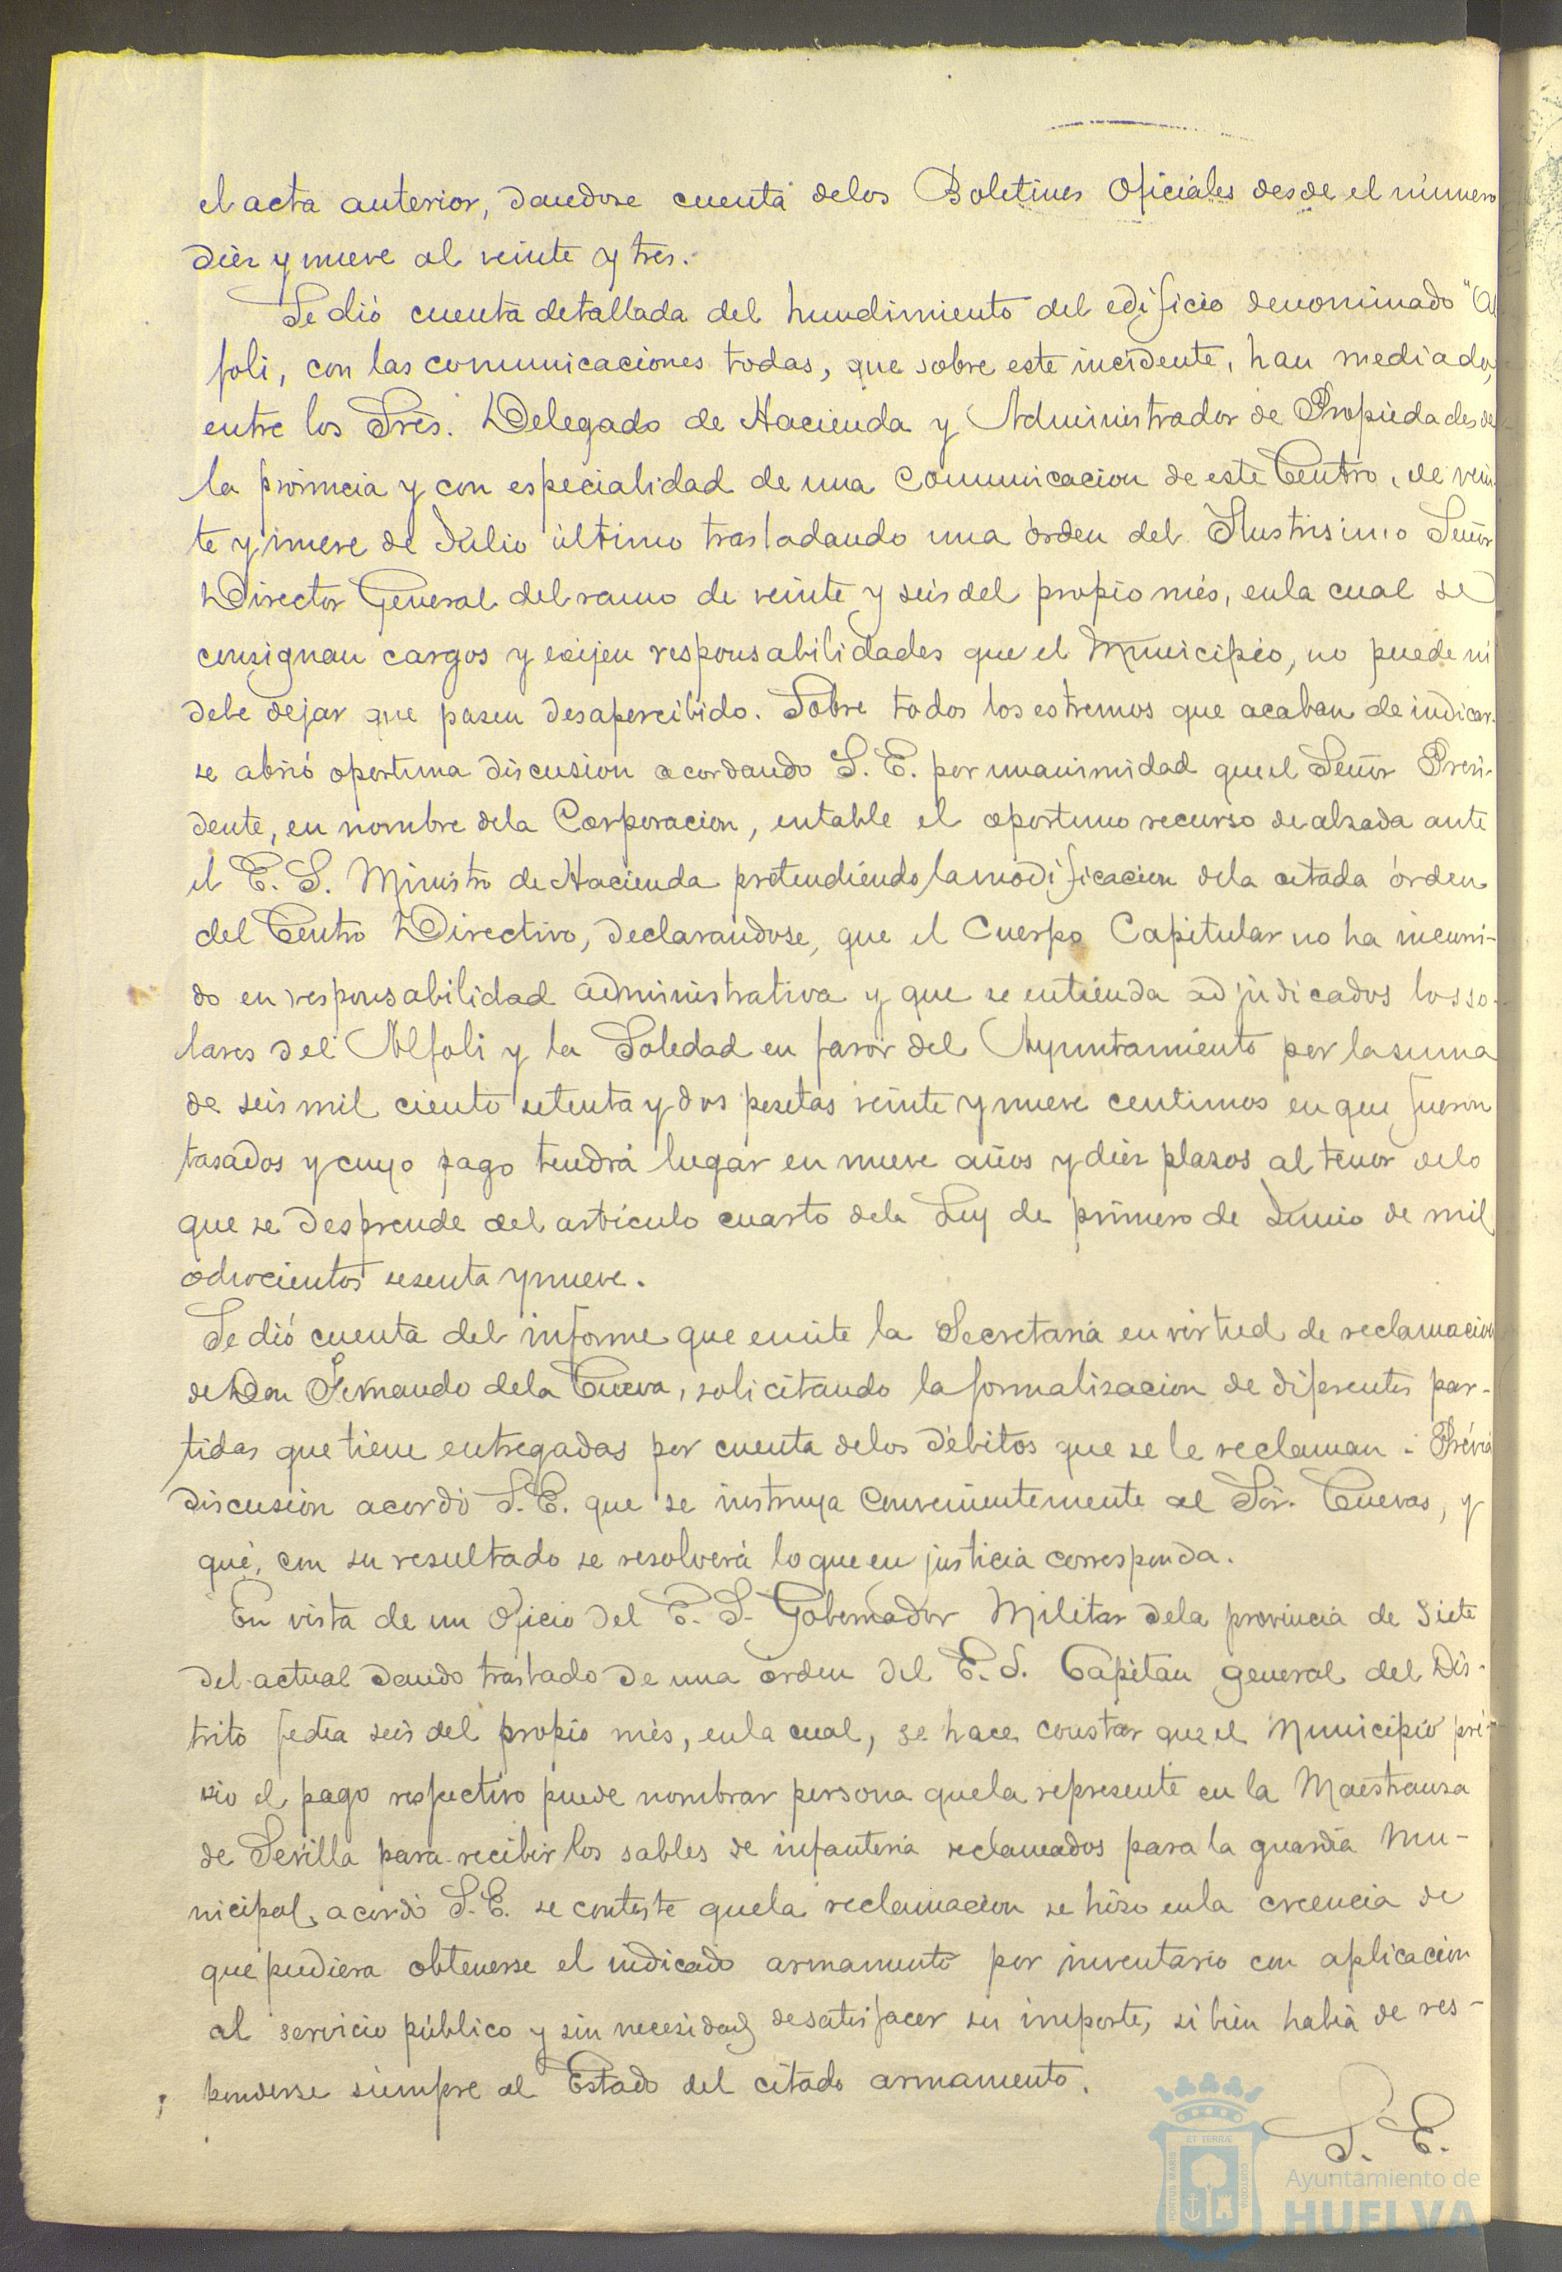 el acta anterior, dandose cuenta delos Boletines Oficiales desde el número
diez y nueve al veinte y tres.
Se dió cuenta detallada del hundimiento del edificio denominado "Al
foli, con las comunicaciones todas, que sobre este incidente, han mediado,
entre los Sres. Delegado de Hacienda y Administrador de Propiedades de
la provincia y con especialidad de una comunicacion de este Centro, de vein
te y nueve de Julio último trasladando una órden del Ilustrisimo Señor
Director General del ramo de veinte y seis del propio més, enla cual se
consignan cargos y exijen responsabilidades que el Municipio, no puede ni
debe dejar que pasen desapercibido. Sobre todos los estremos que acaban de indicar-
se abrió oportuna discusion acordando S. E. por unanimidad que el Señor Presi-
dente, en nombre dela Corporacion, entable el oportuno recurso de alzada ante
el E. S. Ministro de Hacienda pretendiendo la modificacion dela citada órden
del Centro Directivo, declarandose, que el Cuerpo Capitular no ha incurri-
do en responsabilidad administrativa y que se entienda adjudicados los so-
lares del Alfoli y la Soledad en favor del Ayuntamiento por la suma
de seis mil ciento setenta y dos pesetas veinte y nueve centimos en que fueron
tasados y cuyo pago tendrá lugar en nueve años y diez plazos al tenor delo
que se desprende del artículo cuarto dela Ley de primero de Junio de mil
ochocientos sesenta y nueve.
Se dió cuenta del informe que emite la Secretaria en virtud de reclamacion
de Don Fernando dela Cueva, solicitando la formalisacion de diferentes par-
tidas que tiene entregadas por cuenta delos débitos que se le reclaman. Prévia
discusion acordó S. E. que se instruya convenientemente al Sor. Cuevas, y
que, con su resultado se resolverá lo que en justicia corresponda.
En vista de un Oficio del E. S. Gobernador Militar dela provincia de Siete
del actual dando traslado de una órden del E. S. Capitan general del Dis-
trito fecha seis del propio més, enla cual, se hace constar que el Municipio pré-
vio el pago respectivo puede nombrar persona quela represente en la Maestranza
de Sevilla para recibir los sables de infanteria reclamados para la guardia Mu-
nicipal, acordó S. E. se conteste quela reclamacion se hizo enla creencia de
que pudiera obtenerse el indicado armamento por inventario con aplicacion
al servicio público y sin necesidad de satisfacer su importe, si bien habia de res-
ponderse siempre al Estado del citado armamento.
S. E.
PORTUS MARIS ET TERRAE CUSTODIA
Ayuntamiento de
HUELVA